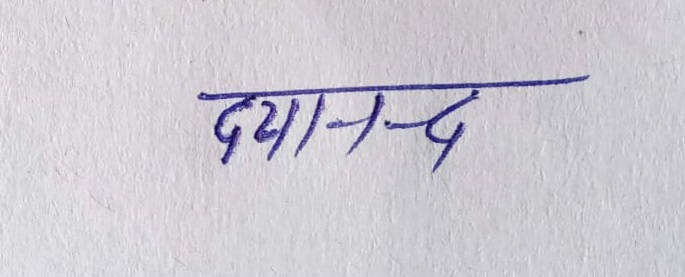 दयानन्द